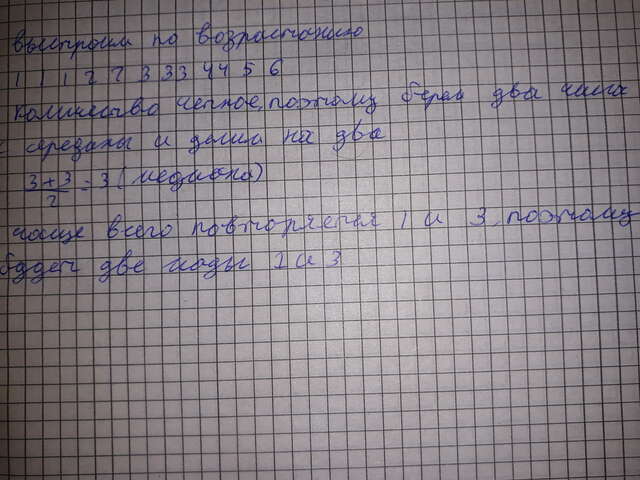 выстроим по возрастанию
1 1 1 2 2 3 3 3 4 4 5 6
количество четное, поэтому берем два числа
с середины и делим на два
3+3/2 = 3 (медиана)
чаще всего повторяется 1 и 3, поэтому
будет две моды 1 и 3